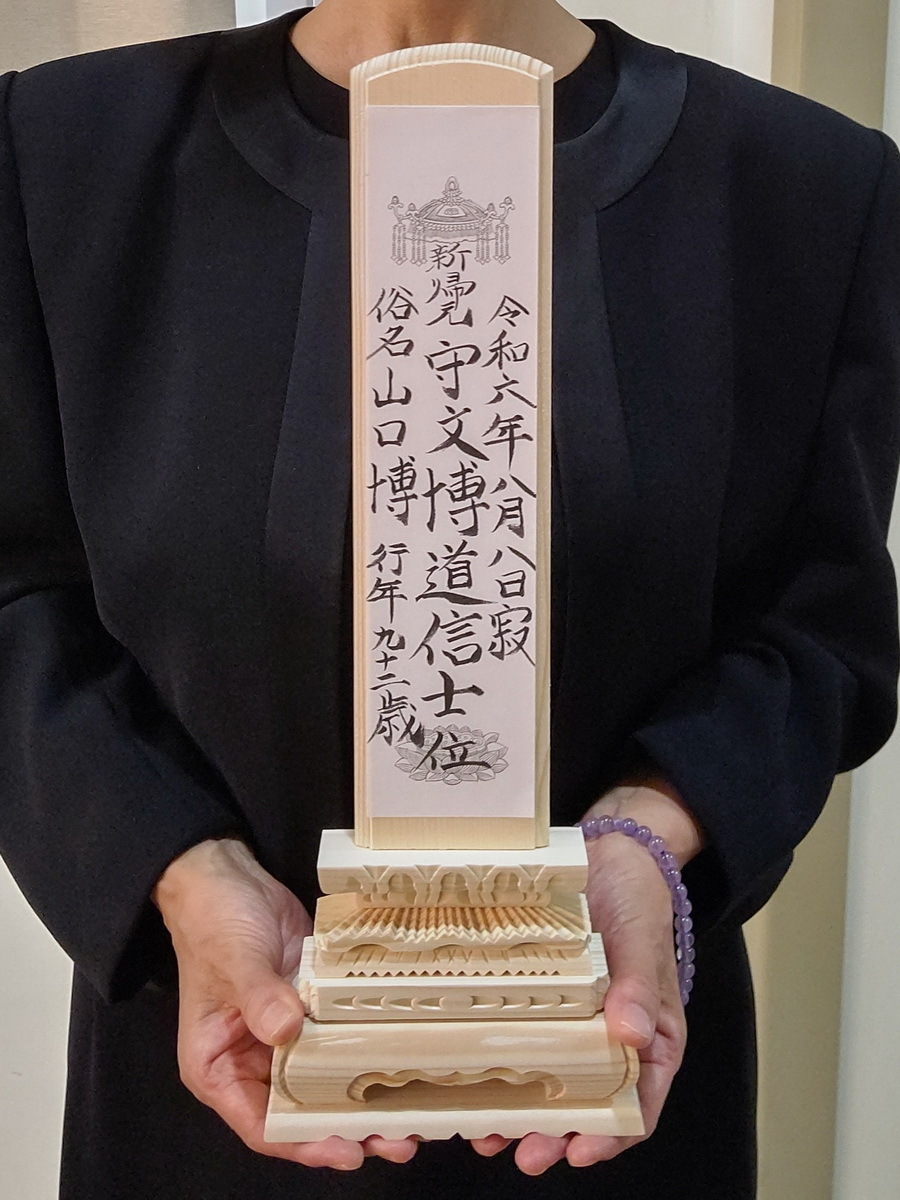 令和六年八月八日寂
新帰元 守文博道信士位
俗名山口博 行年九十二歳